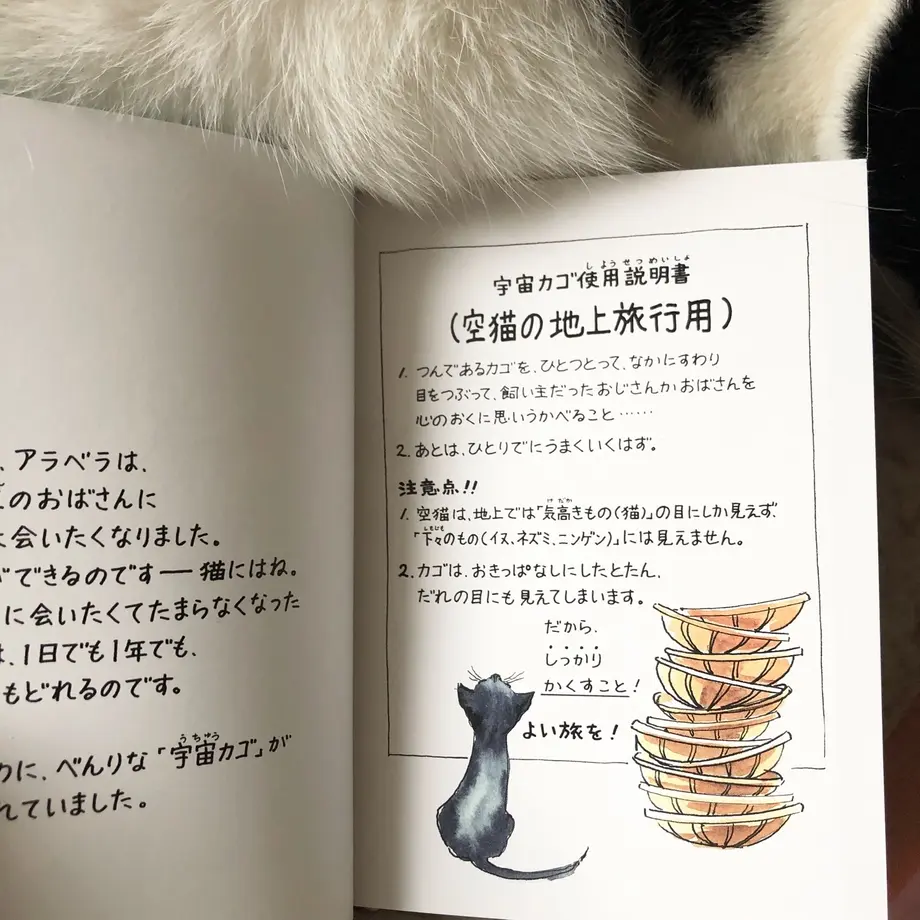 、アラベラは、
のおばさんに
会いたくなりました。
ができるのです――猫にはね。
に会いたくてたまらなくなった
は、1日でも1年でも、
もどれるのです。
めに、べんりな「宇宙カゴ」が
うちゅう
れていました。
しようせつめいしょ
宇宙カゴ使用説明書
(空猫の地上旅行用)
1. つんであるカゴを、ひとつとって、なかにすわり
目をつぶって、飼い主だったおじさんかおばさんを
心のおくに思いうかべること……
2. あとは、ひとりでにうまくいくはず。
注意点!!
けだか
1. 空猫は、地上では「気高きもの(猫)」の目にしか見えず、
しもじも
「下々のもの(イヌ、ネズミ、ニンゲン)」には見えません。
2. カゴは、おきっぱなしにしたとたん、
だれの目にも見えてしまいます。
だから、
しっかり
かくすこと!
よい旅を!